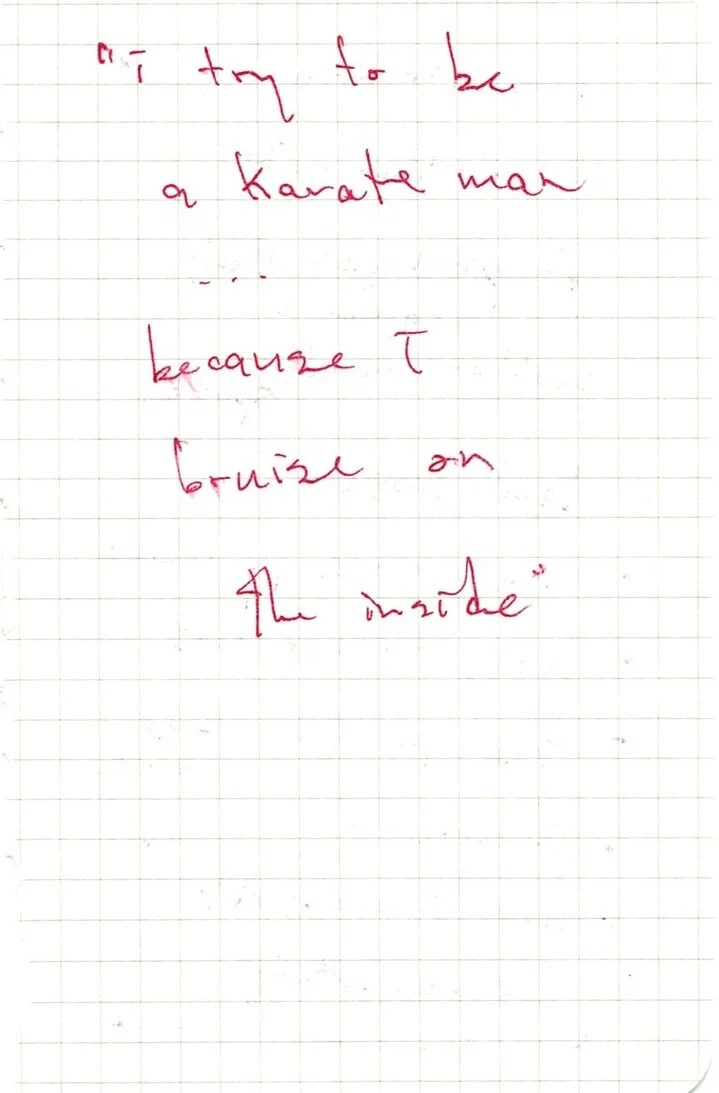 "I try to be
a karate man
...
because I
bruise on
the inside"